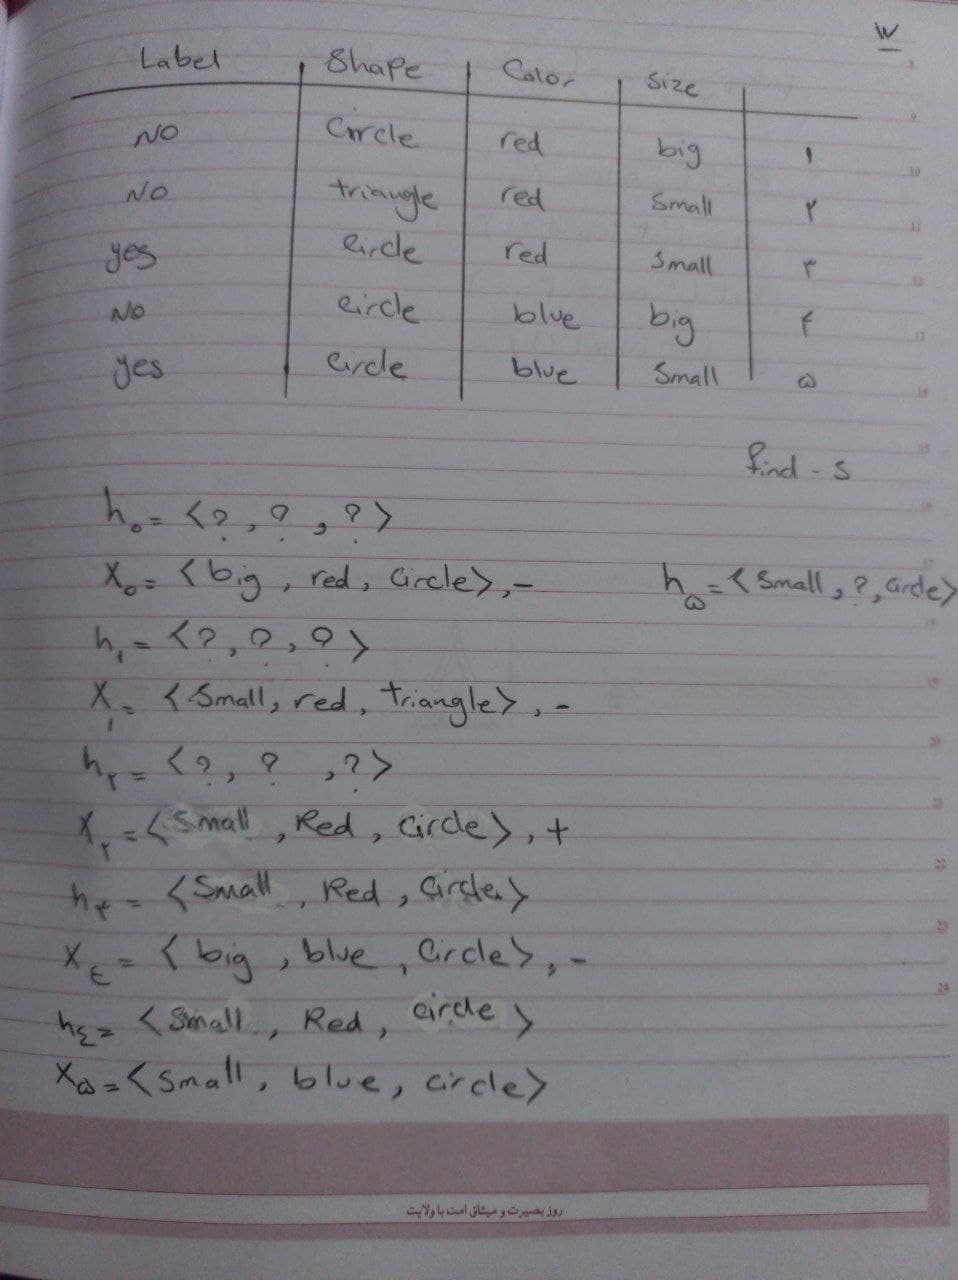 ۳
Label Shape Color Size
NO Circle red big ۱
NO triangle red Small ۲
yes circle red Small ۳
No circle blue big ۴
yes circle blue Small ۵
find - s
h₀ = <?, ?, ?>
X₀ = <big, red, Circle>, - h۵ = <Small, ?, circle>
h۱ = <?, ?, ?>
X۱ = <Small, red, triangle>, -
h۲ = <?, ?, ?>
X۲ = <Small, Red, Circle>, +
h۳ = <Small, Red, Circle>
X۴ = <big, blue, Circle>, -
h۴ = <Small, Red, circle>
X۵ = <Small, blue, circle>
روز بصیرت و میثاق امت با ولایت